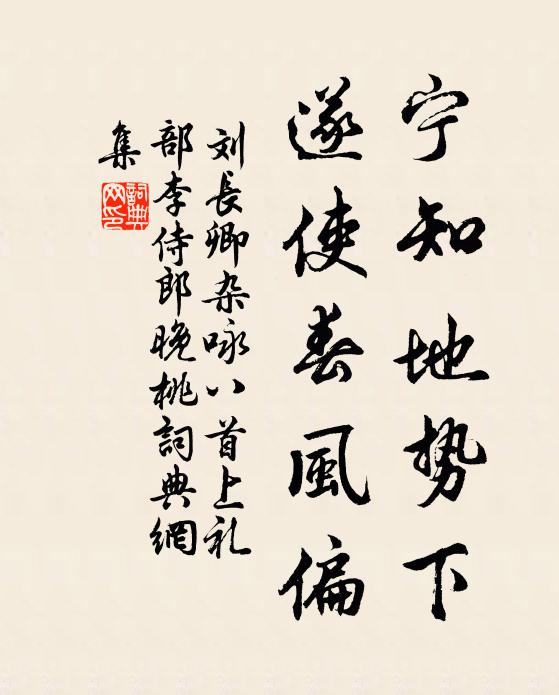 宁知地势下
遂使春風偏
刘長卿杂咏八首上礼
部李侍郎晚桃詞典網
集
詞典
网印